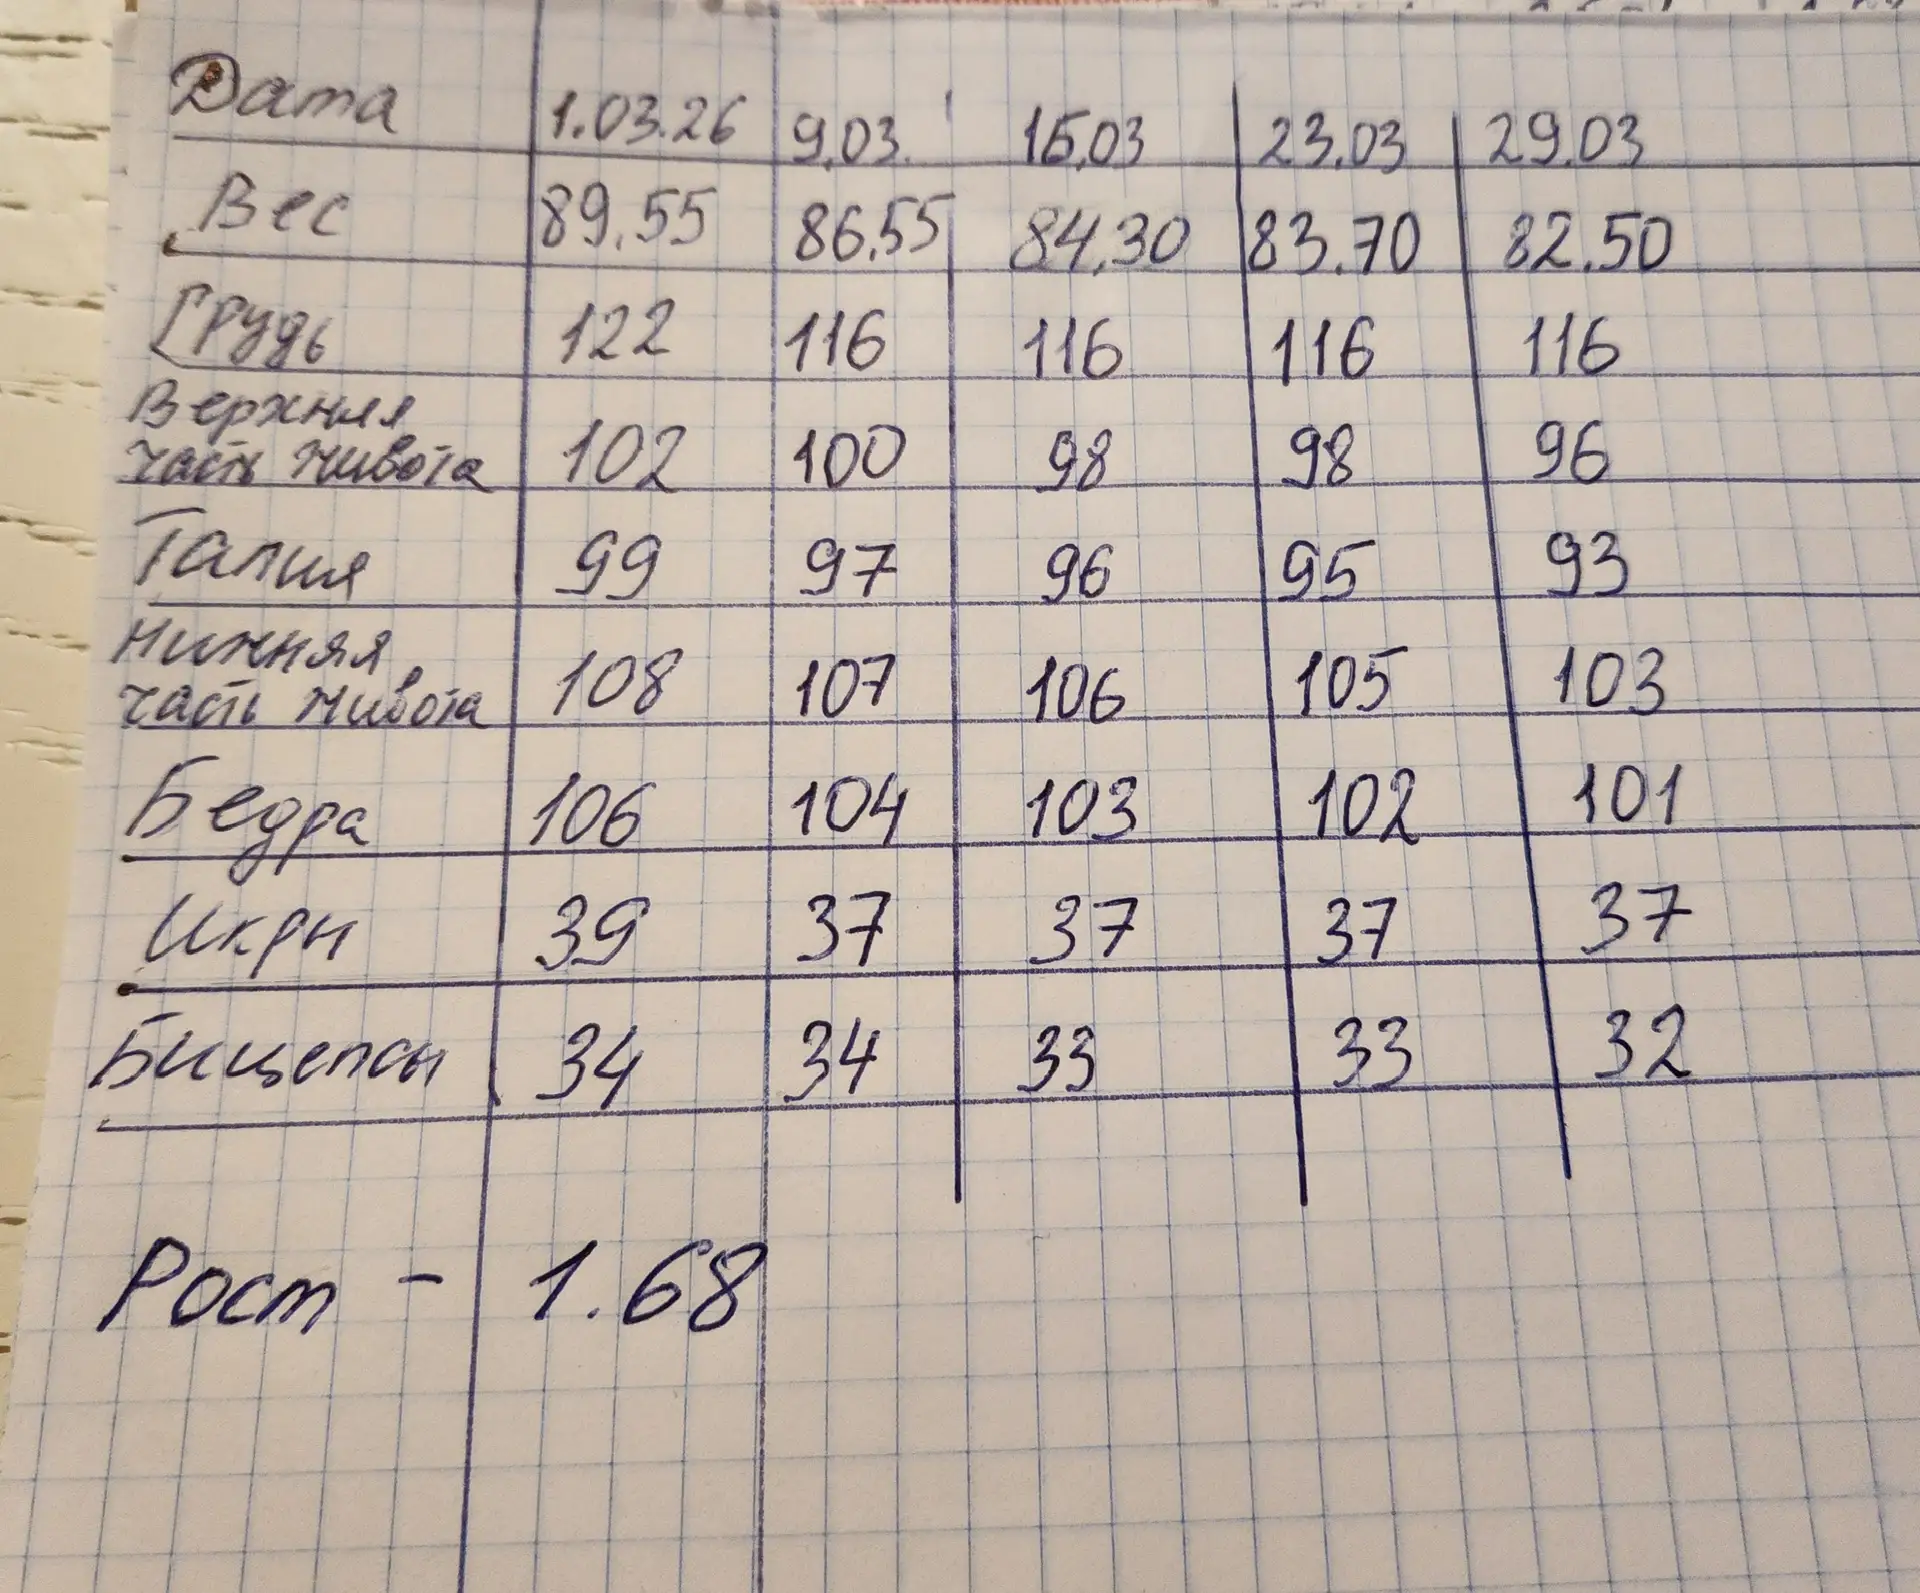 Дата 1.03.26 9.03. 15.03 23.03 29.03
Вес 89.55 86.55 84.30 83.70 82.50
Грудь 122 116 116 116 116
Верхняя
часть живота 102 100 98 98 96
Талия 99 97 96 95 93
Нижняя
часть живота 108 107 106 105 103
Бедра 106 104 103 102 101
Икры 39 37 37 37 37
Бицепсы 34 34 33 33 32
Рост - 1.68